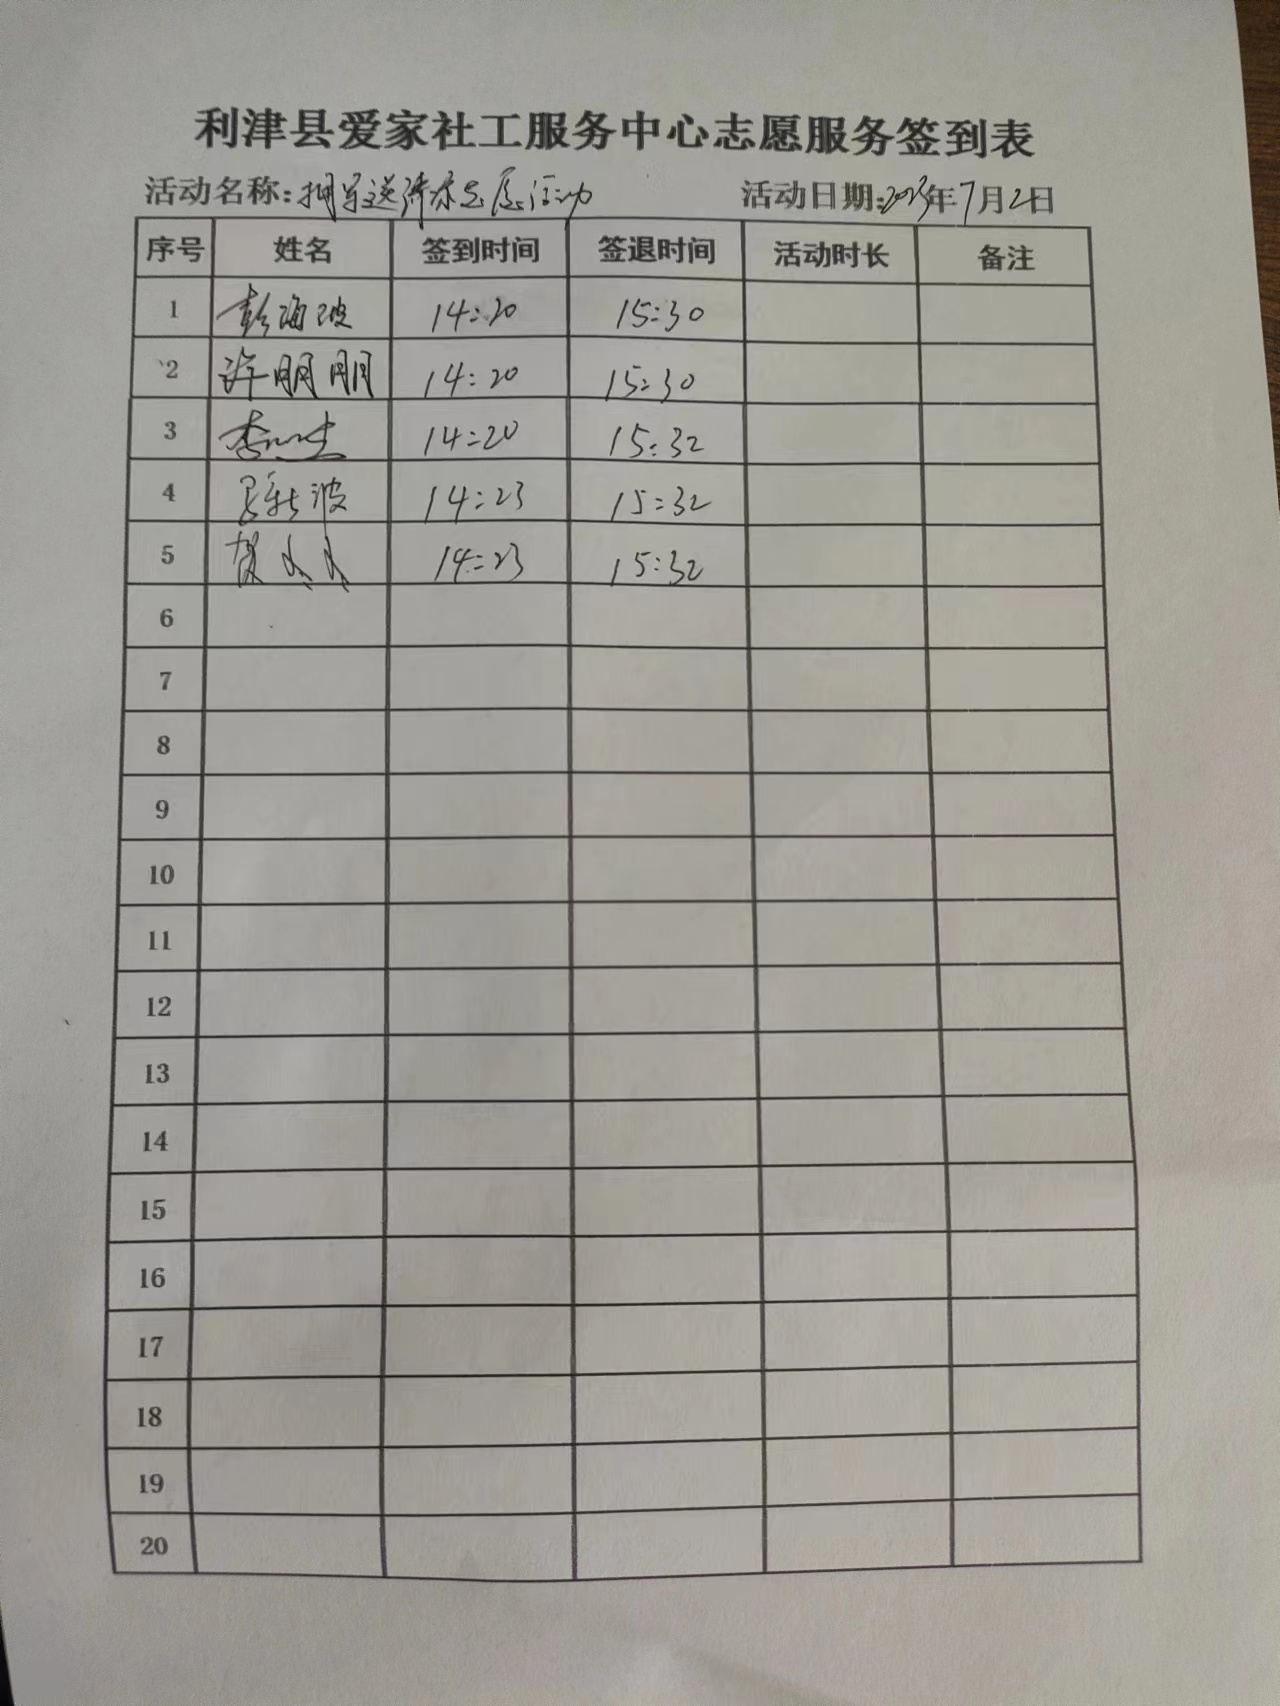 利津县爱家社工服务中心志愿服务签到表
活动名称:拥军送清凉志愿活动 活动日期:2023年7月2日
序号 姓名 签到时间 签退时间 活动时长 备注
1 彭海波 14:20 15:30
2 许朋朋 14:20 15:30
3 李 14:20 15:32
4 波 14:23 15:32
5 贺 14:23 15:32
6
7
8
9
10
11
12
13
14
15
16
17
18
19
20